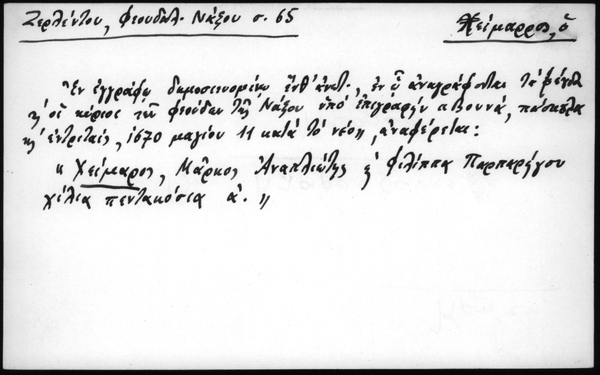 Ζερλέντου, Φεουδαλ. Νάξου σ. 65
Χείμαρρος, ὁ
Ἐν ἐγγράφῳ δημοσιευομένῳ ἔνθ' ἀνωτ., ἐν ᾧ ἀναγράφονται τὰ φέουδα
κ' οἱ κύριοι τῶν φεούδων τῆς Νάξου ὑπὸ ἐπιγραφὴν «βουνά, πάσκουλα
κ' ἐντριταίς, 1670 μαγίου 11 κατὰ τὸ νέο», ἀναφέρεται:
« Χείμαρος, Μᾶρκος Ἀναπλιώτης κ' Φιλίππα Παρπαρήγου
χίλια πεντακόσια ἀ. »